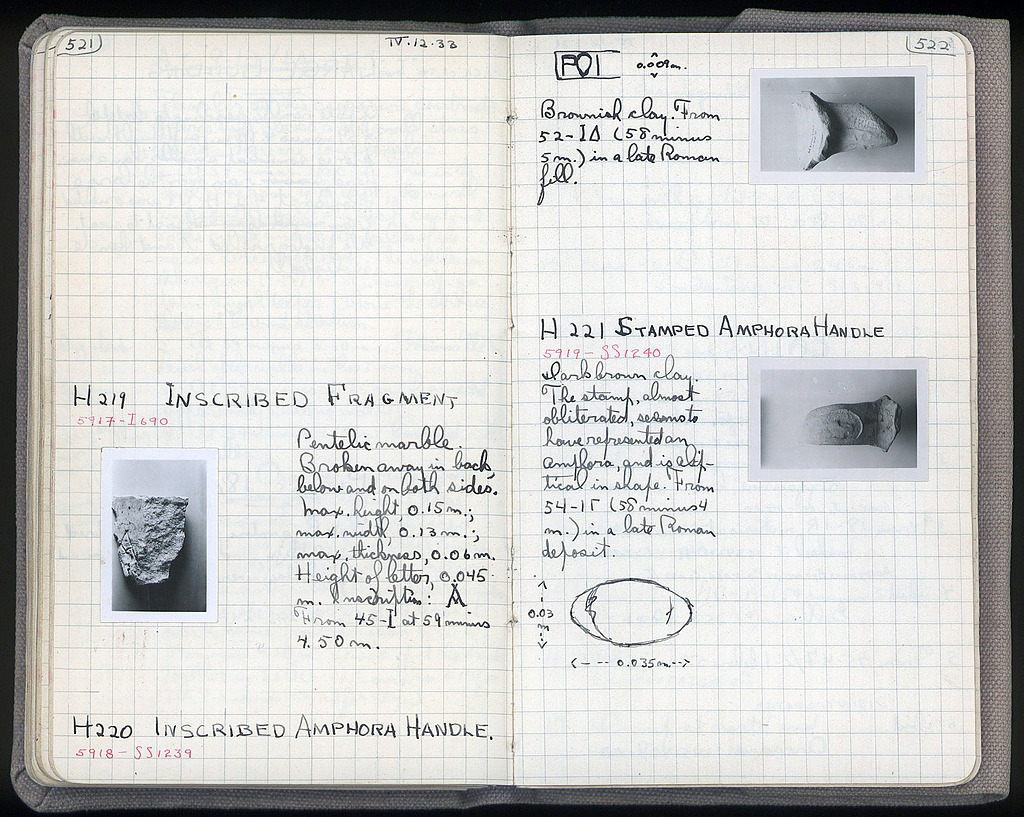 521
IV.12.33
H219 INSCRIBED FRAGMENT
5917-I690
Pentelic marble.
Broken away in back,
below and on both sides.
Max. height, 0.15 m.;
max. width, 0.13 m.;
max. thickness, 0.06 m.
Height of letter, 0.045
m. Inscription: Α
From 45-Γ at 59 minus
4.50 m.
H220 INSCRIBED AMPHORA HANDLE.
5918-SS1239
522
ΡΟΙ 0.009m.
Brownish clay. From
52-ΙΔ (58 minus
5 m.) in a late Roman
fill.
H 221 STAMPED AMPHORA HANDLE
5919-SS1240
Dark brown clay.
The stamp, almost
obliterated, seems to
have represented an
amphora, and is elip-
tical in shape. From
54-ΙΓ (58 minus 4
m.) in a late Roman
deposit.
0.03
m
0.035m.